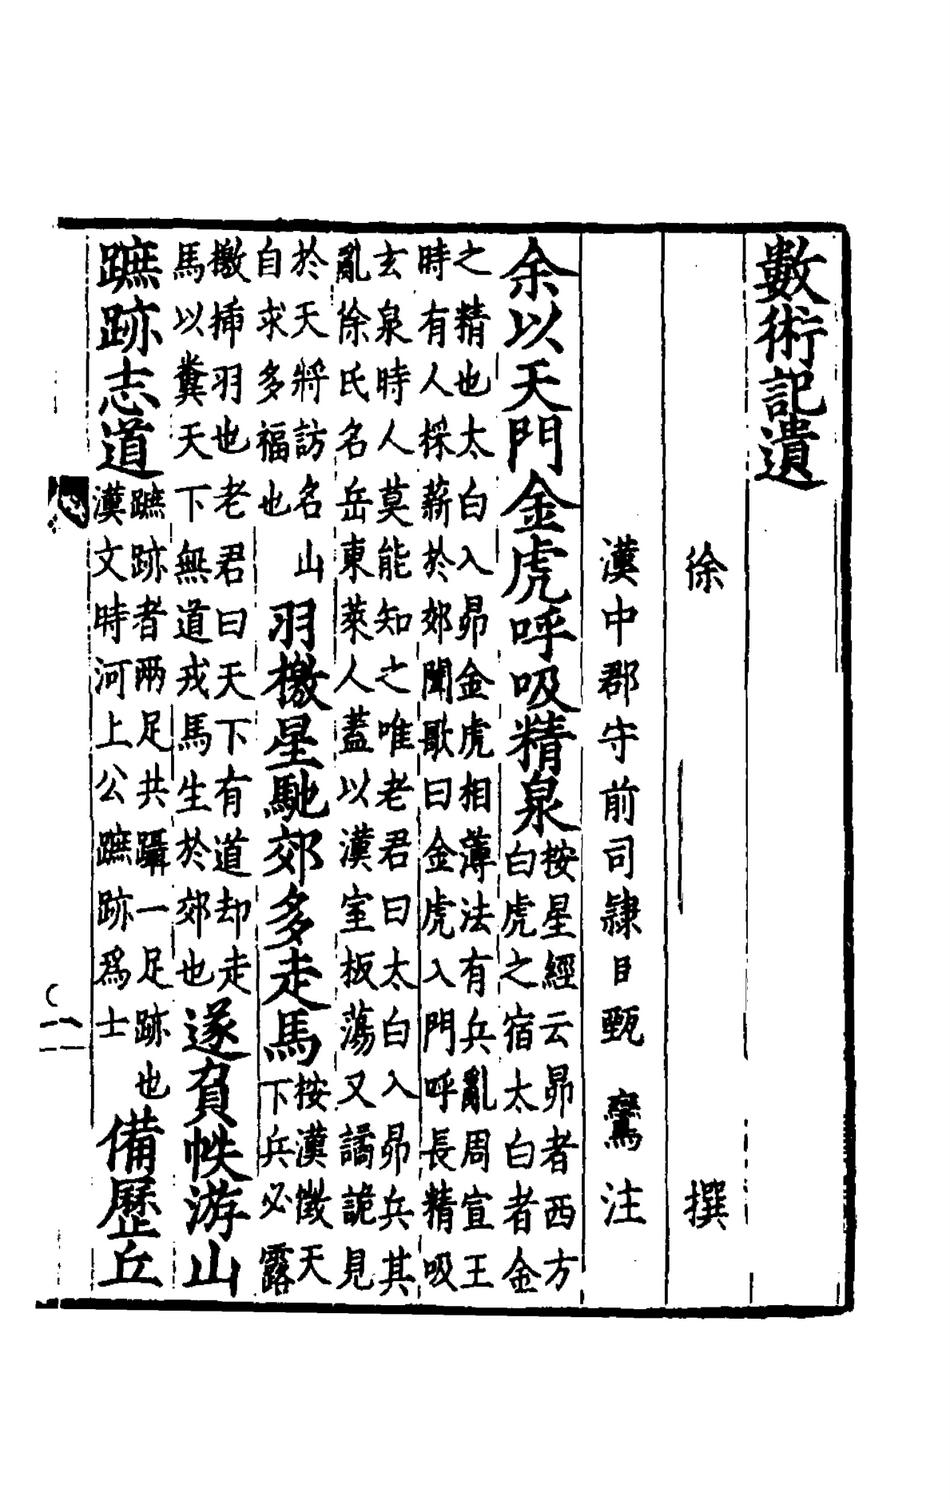 數術記遺
徐　撰
漢中郡守前司隸臣甄　鸞　注
余以天門金虎呼吸精泉
按星經云昴者西方
白虎之宿太白者金
之精也太白入昴金虎相薄法有兵亂周宣王
時有人採薪於郊聞歌曰金虎入門呼長精吸
玄泉時人莫能知之唯老君曰太白入昴兵其
亂徐氏名岳東萊人蓋以漢室板蕩又譎詭見
於天將訪名山
自求多福也
羽檄星馳郊多走馬
按漢徵天
下兵必露
檄揷羽也老君曰天下有道却走
馬以糞天下無道戎馬生於郊也
遂負帙游山
蹠跡志道
蹠跡者兩足共躡一足跡也
漢文時河上公蹠跡爲士
備歷丘